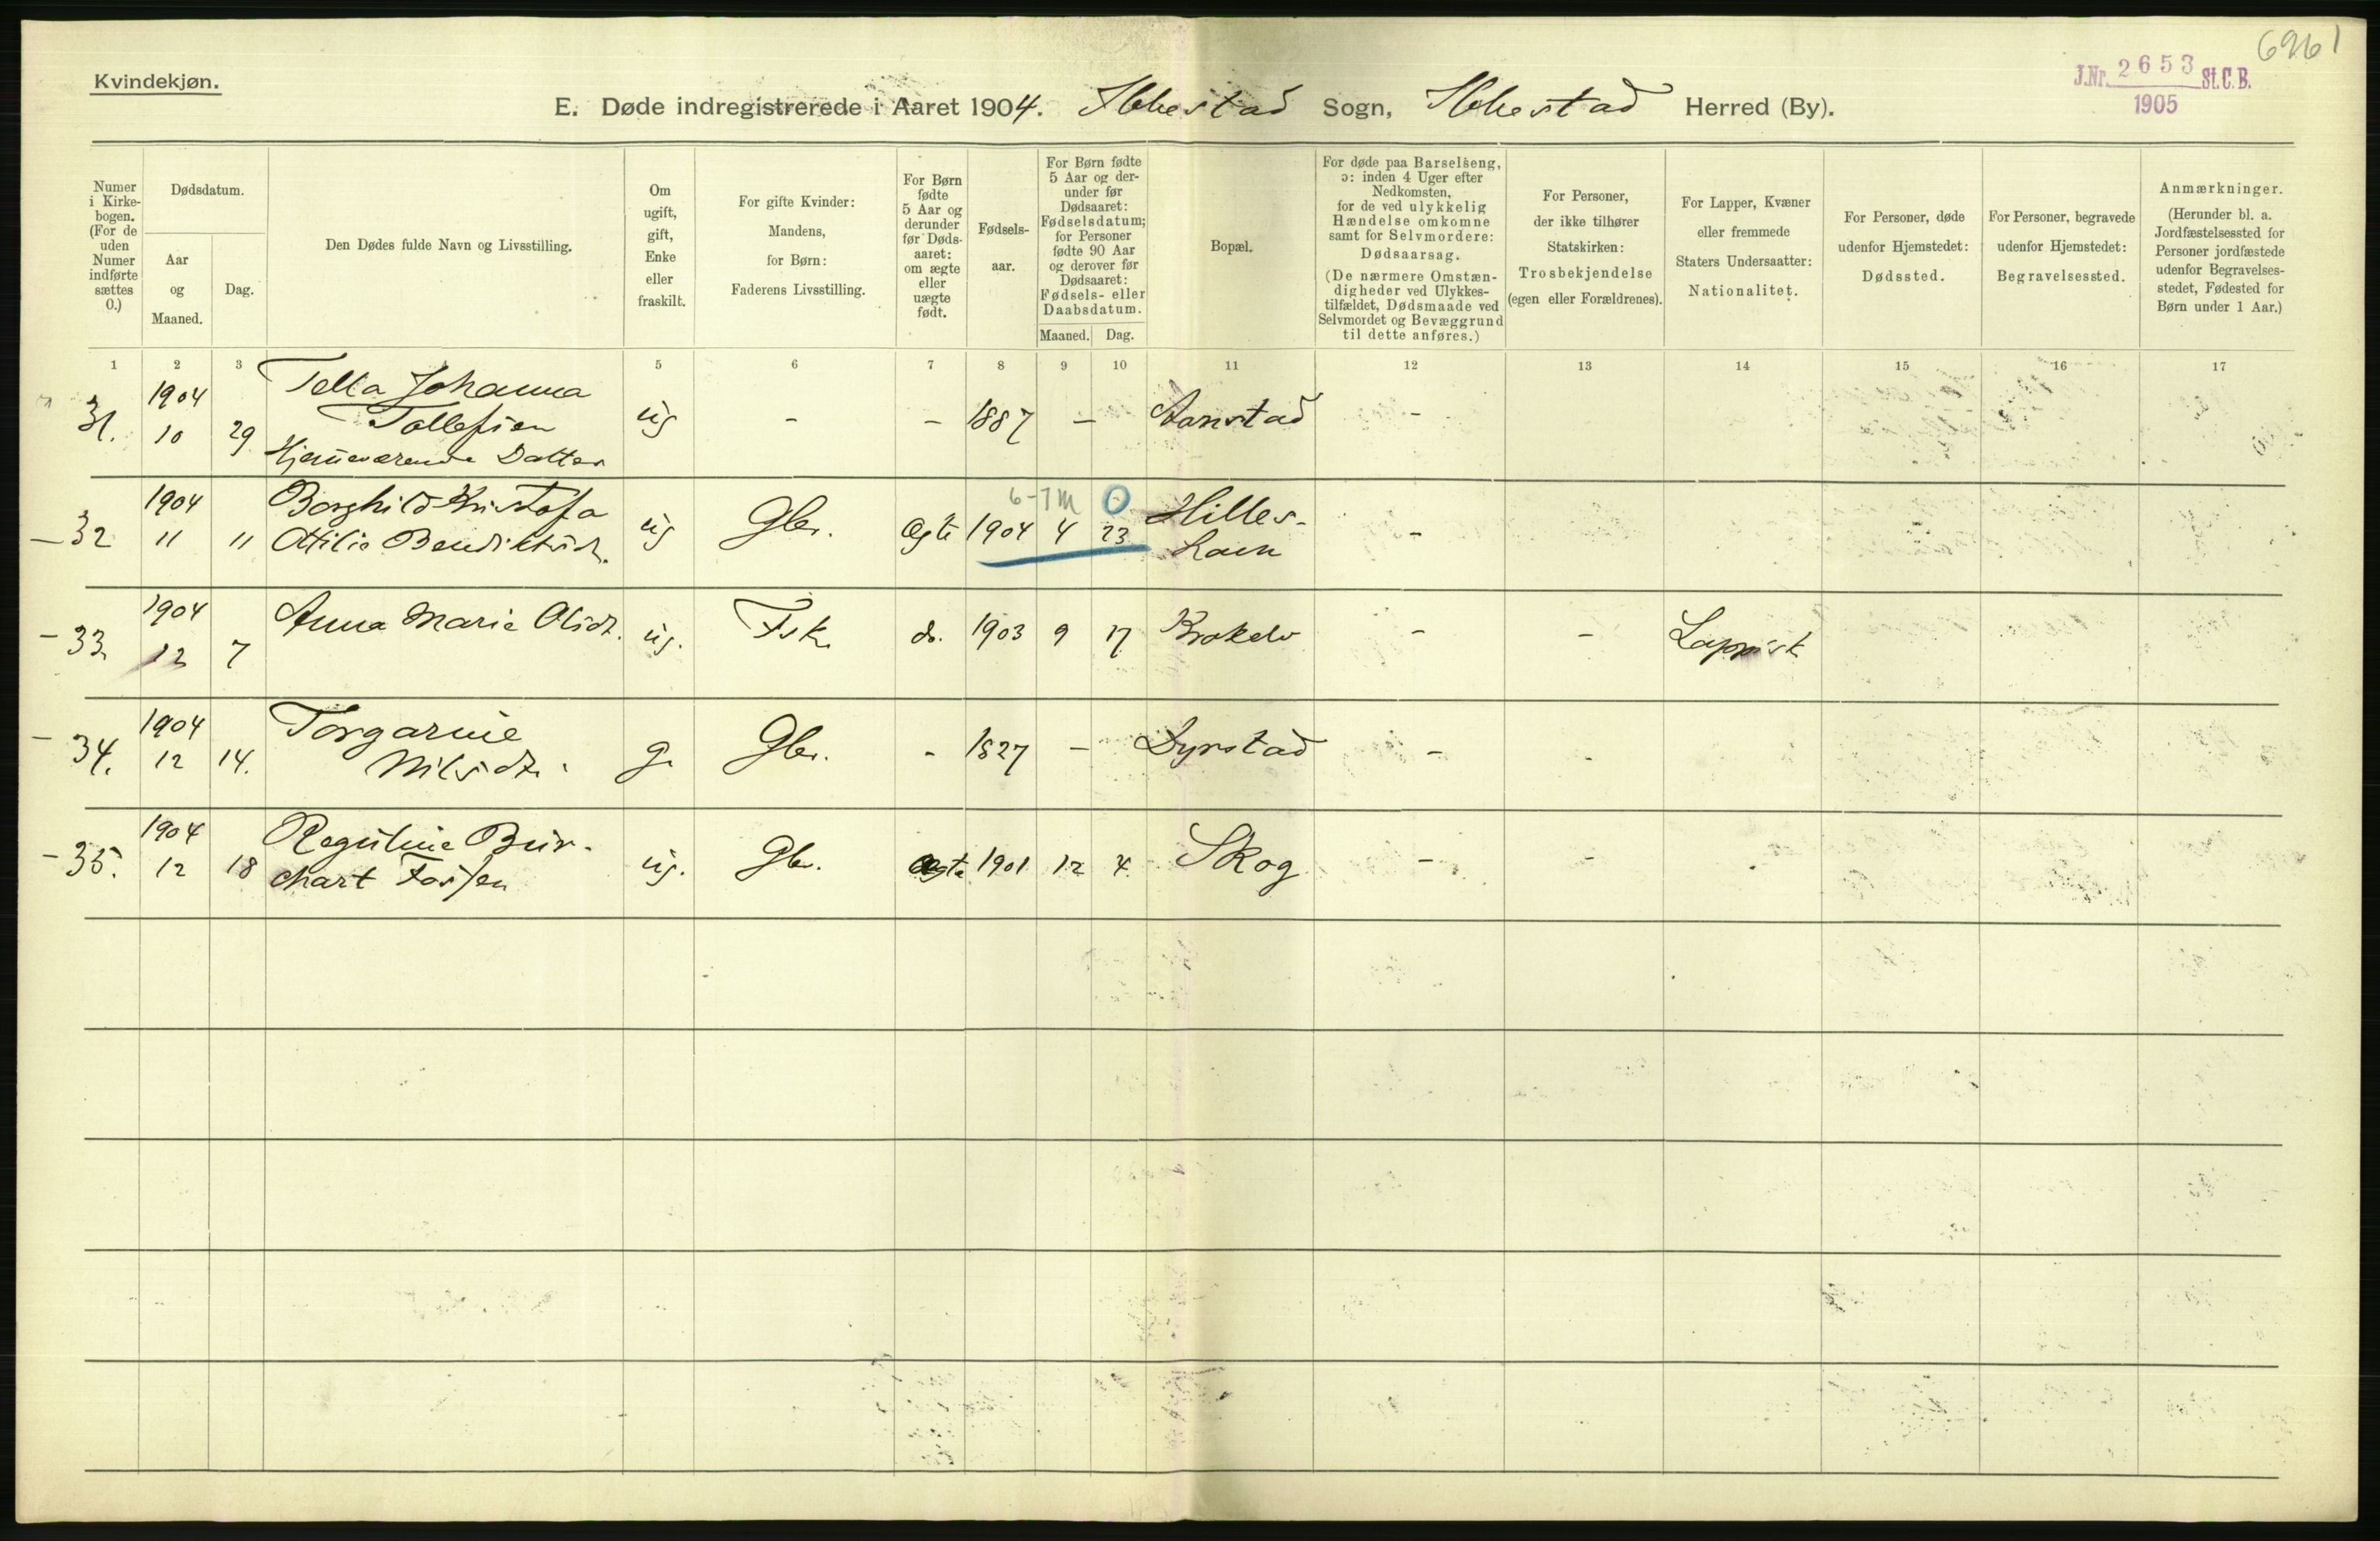 6961
Kvindekjøn.
J.Nr. 2653 St.C.B.
1905
E. Døde indregistrerede i Aaret 1904. Ibbestad Sogn, Ibbestad Herred (By).
Numer i Kirkebogen. (For de uden Numer indførte sættes 0.)
Dødsdatum.
Aar og Maaned.
Dag.
Den Dødes fulde Navn og Livsstilling.
Om ugift, gift, Enke eller fraskilt.
For gifte Kvinder: Mandens, for Børn: Faderens Livsstilling.
For Børn fødte 5 Aar og derunder før Dødsaaret: om ægte eller uægte født.
Fødselsaar.
For Børn fødte 5 Aar og derunder før Dødsaaret: Fødselsdatum; for Personer fødte 90 Aar og derover før Dødsaaret: Fødsels- eller Daabsdatum.
Maaned. Dag.
Bopæl.
For døde paa Barselseng, ɔ: inden 4 Uger efter Nedkomsten, for de ved ulykkelig Hændelse omkomne samt for Selvmordere: Dødsaarsag.
(De nærmere Omstændigheder ved Ulykkestilfældet, Dødsmaade ved Selvmordet og Bevæggrund til dette anføres.)
For Personer, der ikke tilhører Statskirken: Trosbekjendelse (egen eller Forældrenes).
For Lapper, Kvæner eller fremmede Staters Undersaatter: Nationalitet.
For Personer, døde udenfor Hjemstedet: Dødssted.
For Personer, begravede udenfor Hjemstedet: Begravelsessted.
Anmærkninger.
(Herunder bl. a. Jordfæstelsessted for Personer jordfæstede udenfor Begravelsesstedet, Fødested for Børn under 1 Aar.)
1 2 3 5 6 7 8 9 10 11 12 13 14 15 16 17
31. 1904 10 29 Tella Johanna Tollefsen Hjemmeværende Datter ug - - 1887 - Aanstad -
6-7m 0
32 1904 11 11 Borghild Kristofa Otilie Bendiktsdt. ug Gbr. Ægte 1904 4 23 Hilleshavn -
33. 1904 12 7 Anna Marie Olsdt. ug. Fsk. do. 1903 9 17 Krokelv - - Lappisk
34. 1904 12 14. Torgarine Nilsdt. g. Gbr. - 1827 - Dyrstad - -
35. 1904 12 18 Reguline Burchart Fossen ug. Gbr. Ægte 1901 12 4 Skog - -